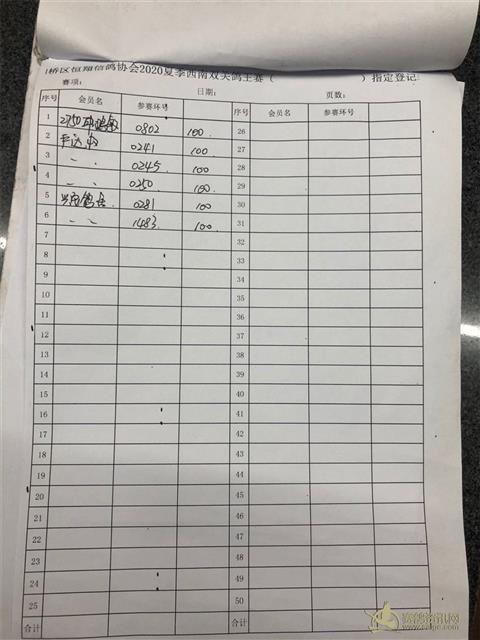 桥区恒翔信鸽协会2020夏季西南双关鸽王赛（ ）指定登记
赛项： 日期： 页数：
序号 会员名 参赛环号 序号 会员名 参赛环号
1 0802 100 26
2 0241 100 27
3 〃 〃 0245 100 28
4 〃 〃 0250 100 29
5 0281 100 30
6 〃 〃 1483 100 31
7 32
8 33
9 34
10 35
11 36
12 37
13 38
14 39
15 40
16 41
17 42
18 43
19 44
20 45
21 46
22 47
23 48
24 49
25 50
合计 合计